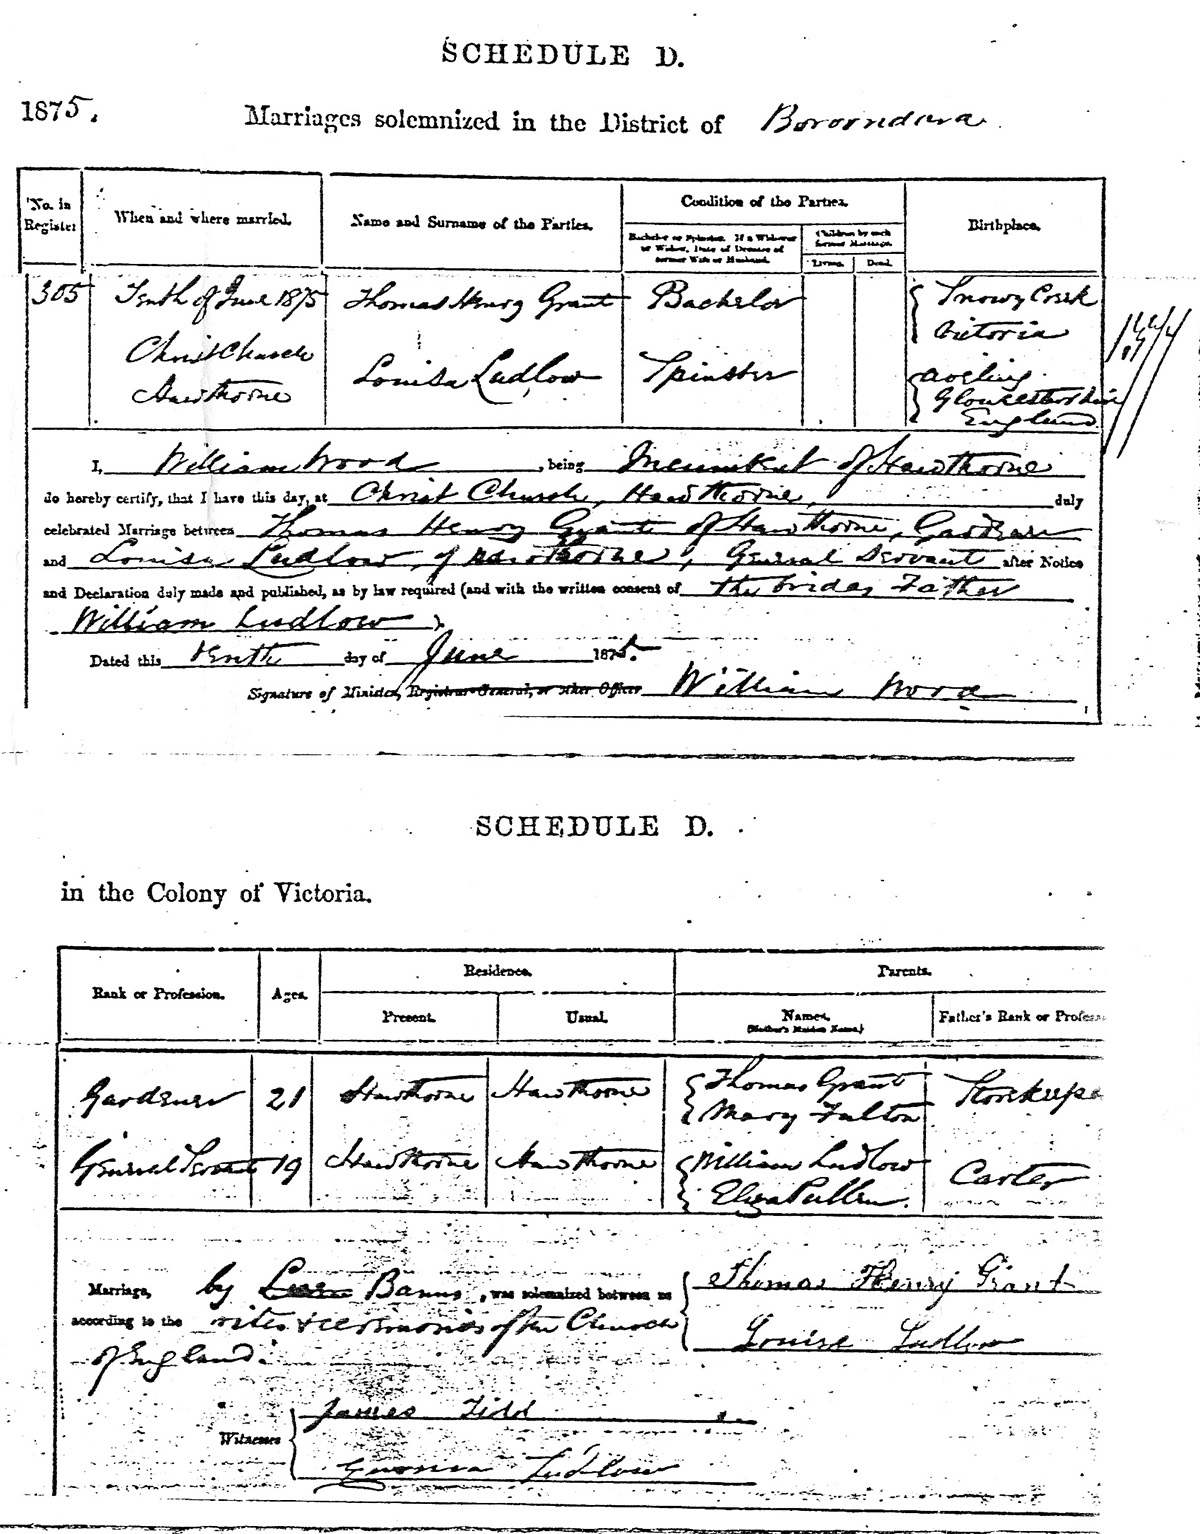 SCHEDULE D.
1875. Marriages solemnized in the District of Boroondara
No. in Register
When and where married.
Name and Surname of the Parties.
Condition of the Parties.
Bachelor or Spinster. If a Widower or Widow, Date of Decease of former Wife or Husband.
Children by each former Marriage.
Living. Dead.
Birthplace.
305 Tenth of June 1875 Thomas Henry Grant Bachelor Snowy Creek
Victoria
Christ Church
Hawthorne Louisa Ludlow Spinster
Gloucestershire
England
I, William Wood, being of Hawthorne
do hereby certify, that I have this day, at Christ Church, Hawthorne, duly
celebrated Marriage between Thomas Henry Grant of Hawthorne, Gardener
and Louisa Ludlow of Hawthorne, General Servant after Notice
and Declaration duly made and published, as by law required (and with the written consent of the brides Father
William Ludlow ).
Dated this tenth day of June 1875.
Signature of Minister, Registrar-General, or other Officer William Wood
SCHEDULE D.
in the Colony of Victoria.
Rank or Profession.
Ages.
Residence.
Present. Usual.
Parents.
Names. (Mother's Maiden Name.)
Father's Rank or Profess
Gardener 21 Hawthorne Hawthorne Thomas Grant Storekeepe
Mary Fulton
General Servant 19 Hawthorne Hawthorne William Ludlow Carter
Eliza Pullen.
Marriage, by Banns, was solemnized between us Thomas Henry Grant
according to the rites & ceremonies of the Church Louisa Ludlow
of England.
Witnesses James Tidd
Ludlow